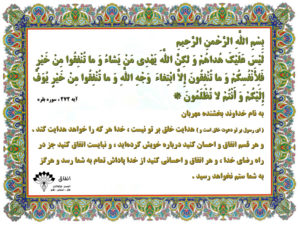 بِسمِ اللَّهِ الرَّحْمنِ الرَّحِيمِ
لَيْسَ عَلَيْكَ هُداهُمْ وَ لكِنَّ اللَّهَ يَهْدِي مَنْ يَشاءُ وَ ما تُنْفِقُوا مِنْ خَيْرٍ
فَلِأَنْفُسِكُمْ وَ ما تُنْفِقُونَ إِلاَّ ابْتِغاءَ وَجْهِ اللَّهِ وَ ما تُنْفِقُوا مِنْ خَيْرٍ يُوَفَّ
إِلَيْكُمْ وَ أَنْتُمْ لا تُظْلَمُونَ
آیه ۲۷۲ ، سوره بقره
به نام خداوند بخشنده مهربان
(ای رسول بر تو دعوت خلق است) هدایت خلق بر تو نیست ، خدا هر که را خواهد هدایت کند .
و هر قسم انفاق و احسان کنید درباره خویش کرده‌اید ، و نبایست انفاق کنید جز در
راه رضای خدا ، و هر انفاق و احسانی کنید از خدا پاداش تمام به شما رسد و هرگز
به شما ستم نخواهد رسید .
انفاق